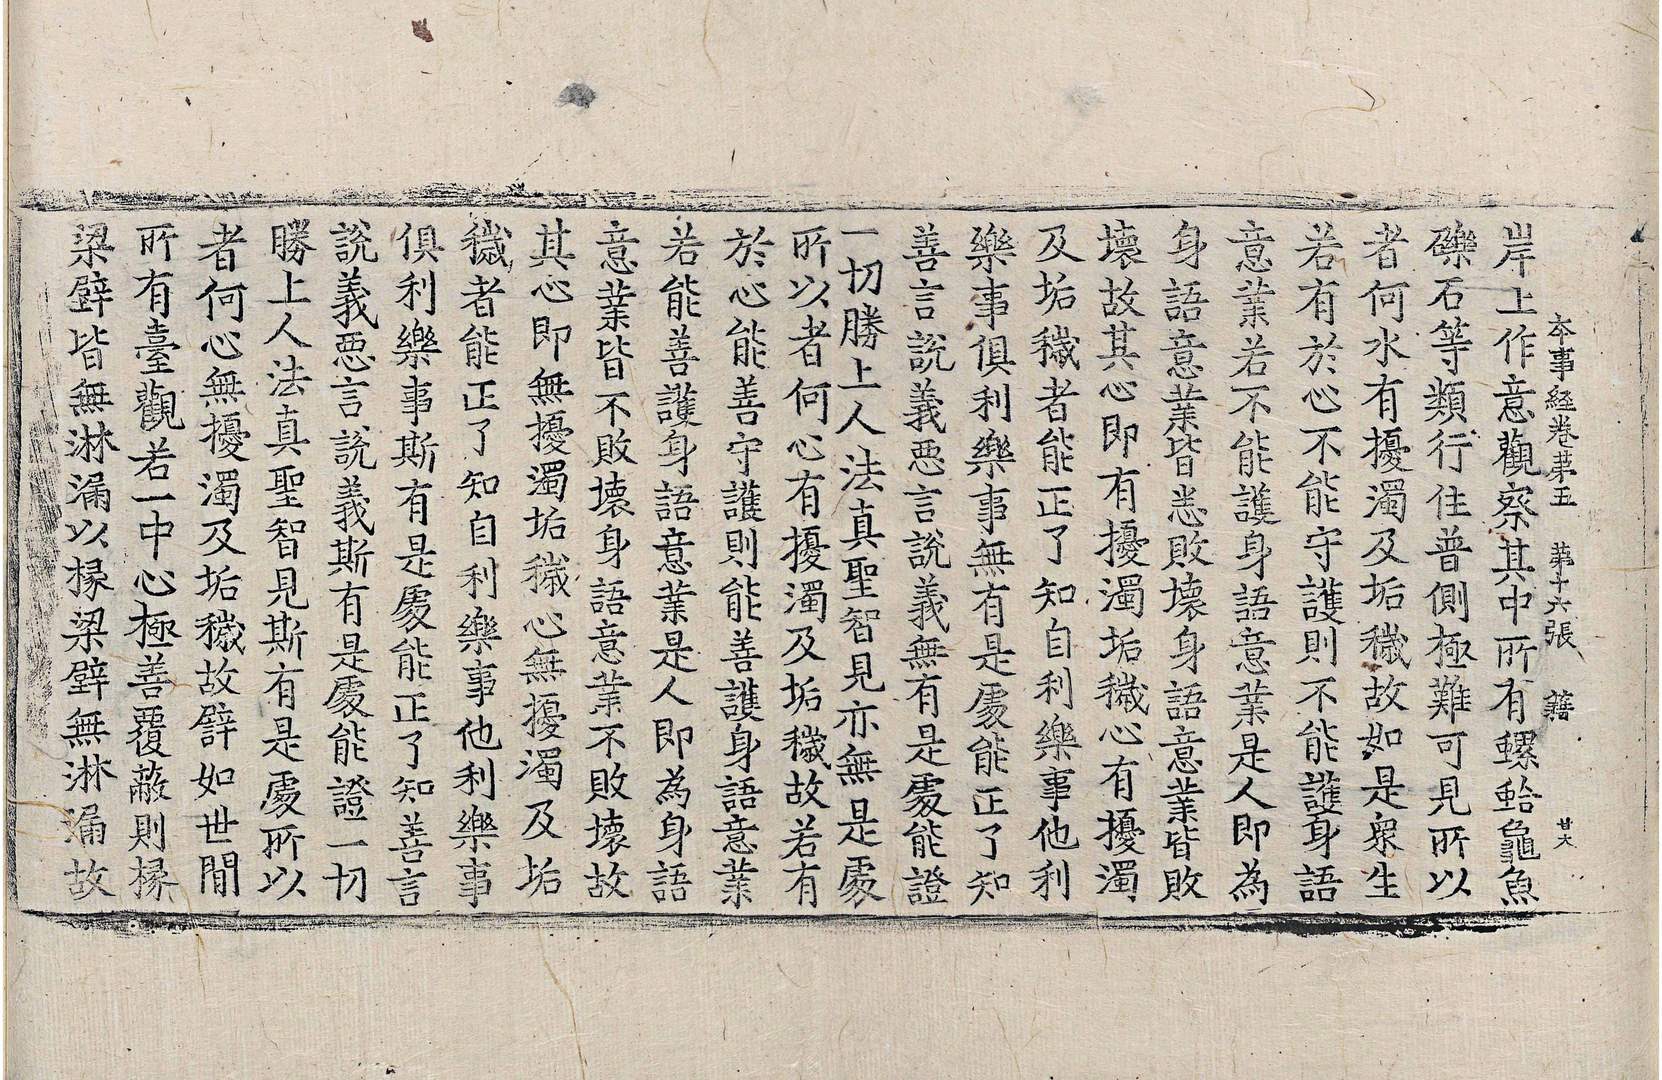 本事経卷苐五 苐十六張 籍
岸上作意觀察其中所有螺蛤龜魚
礫石等類行住普側極難可見所以
者何水有擾濁及垢穢故如是衆生
若有於心不能守護則不能護身語
意業若不能護身語意業是人即為
身語意業皆悉敗壞身語意業皆敗
壞故其心即有擾濁垢穢心有擾濁
及垢穢者能正了知自利樂事他利
樂事俱利樂事無有是處能正了知
善言說義悪言說義無有是處能證
一切勝上人法真聖智見亦無是處
所以者何心有擾濁及垢穢故若有
於心能善守護則能善護身語意業
若能善護身語意業是人即為身語
意業皆不敗壞身語意業不敗壞故
其心即無擾濁垢穢心無擾濁及垢
穢者能正了知自利樂事他利樂事
俱利樂事斯有是處能正了知善言
說義悪言說義斯有是處能證一切
勝上人法真聖智見斯有是處所以
者何心無擾濁及垢穢故譬如世間
所有臺觀若一中心極善覆蔽則椽
梁壁皆無淋漏以椽梁壁無淋漏故